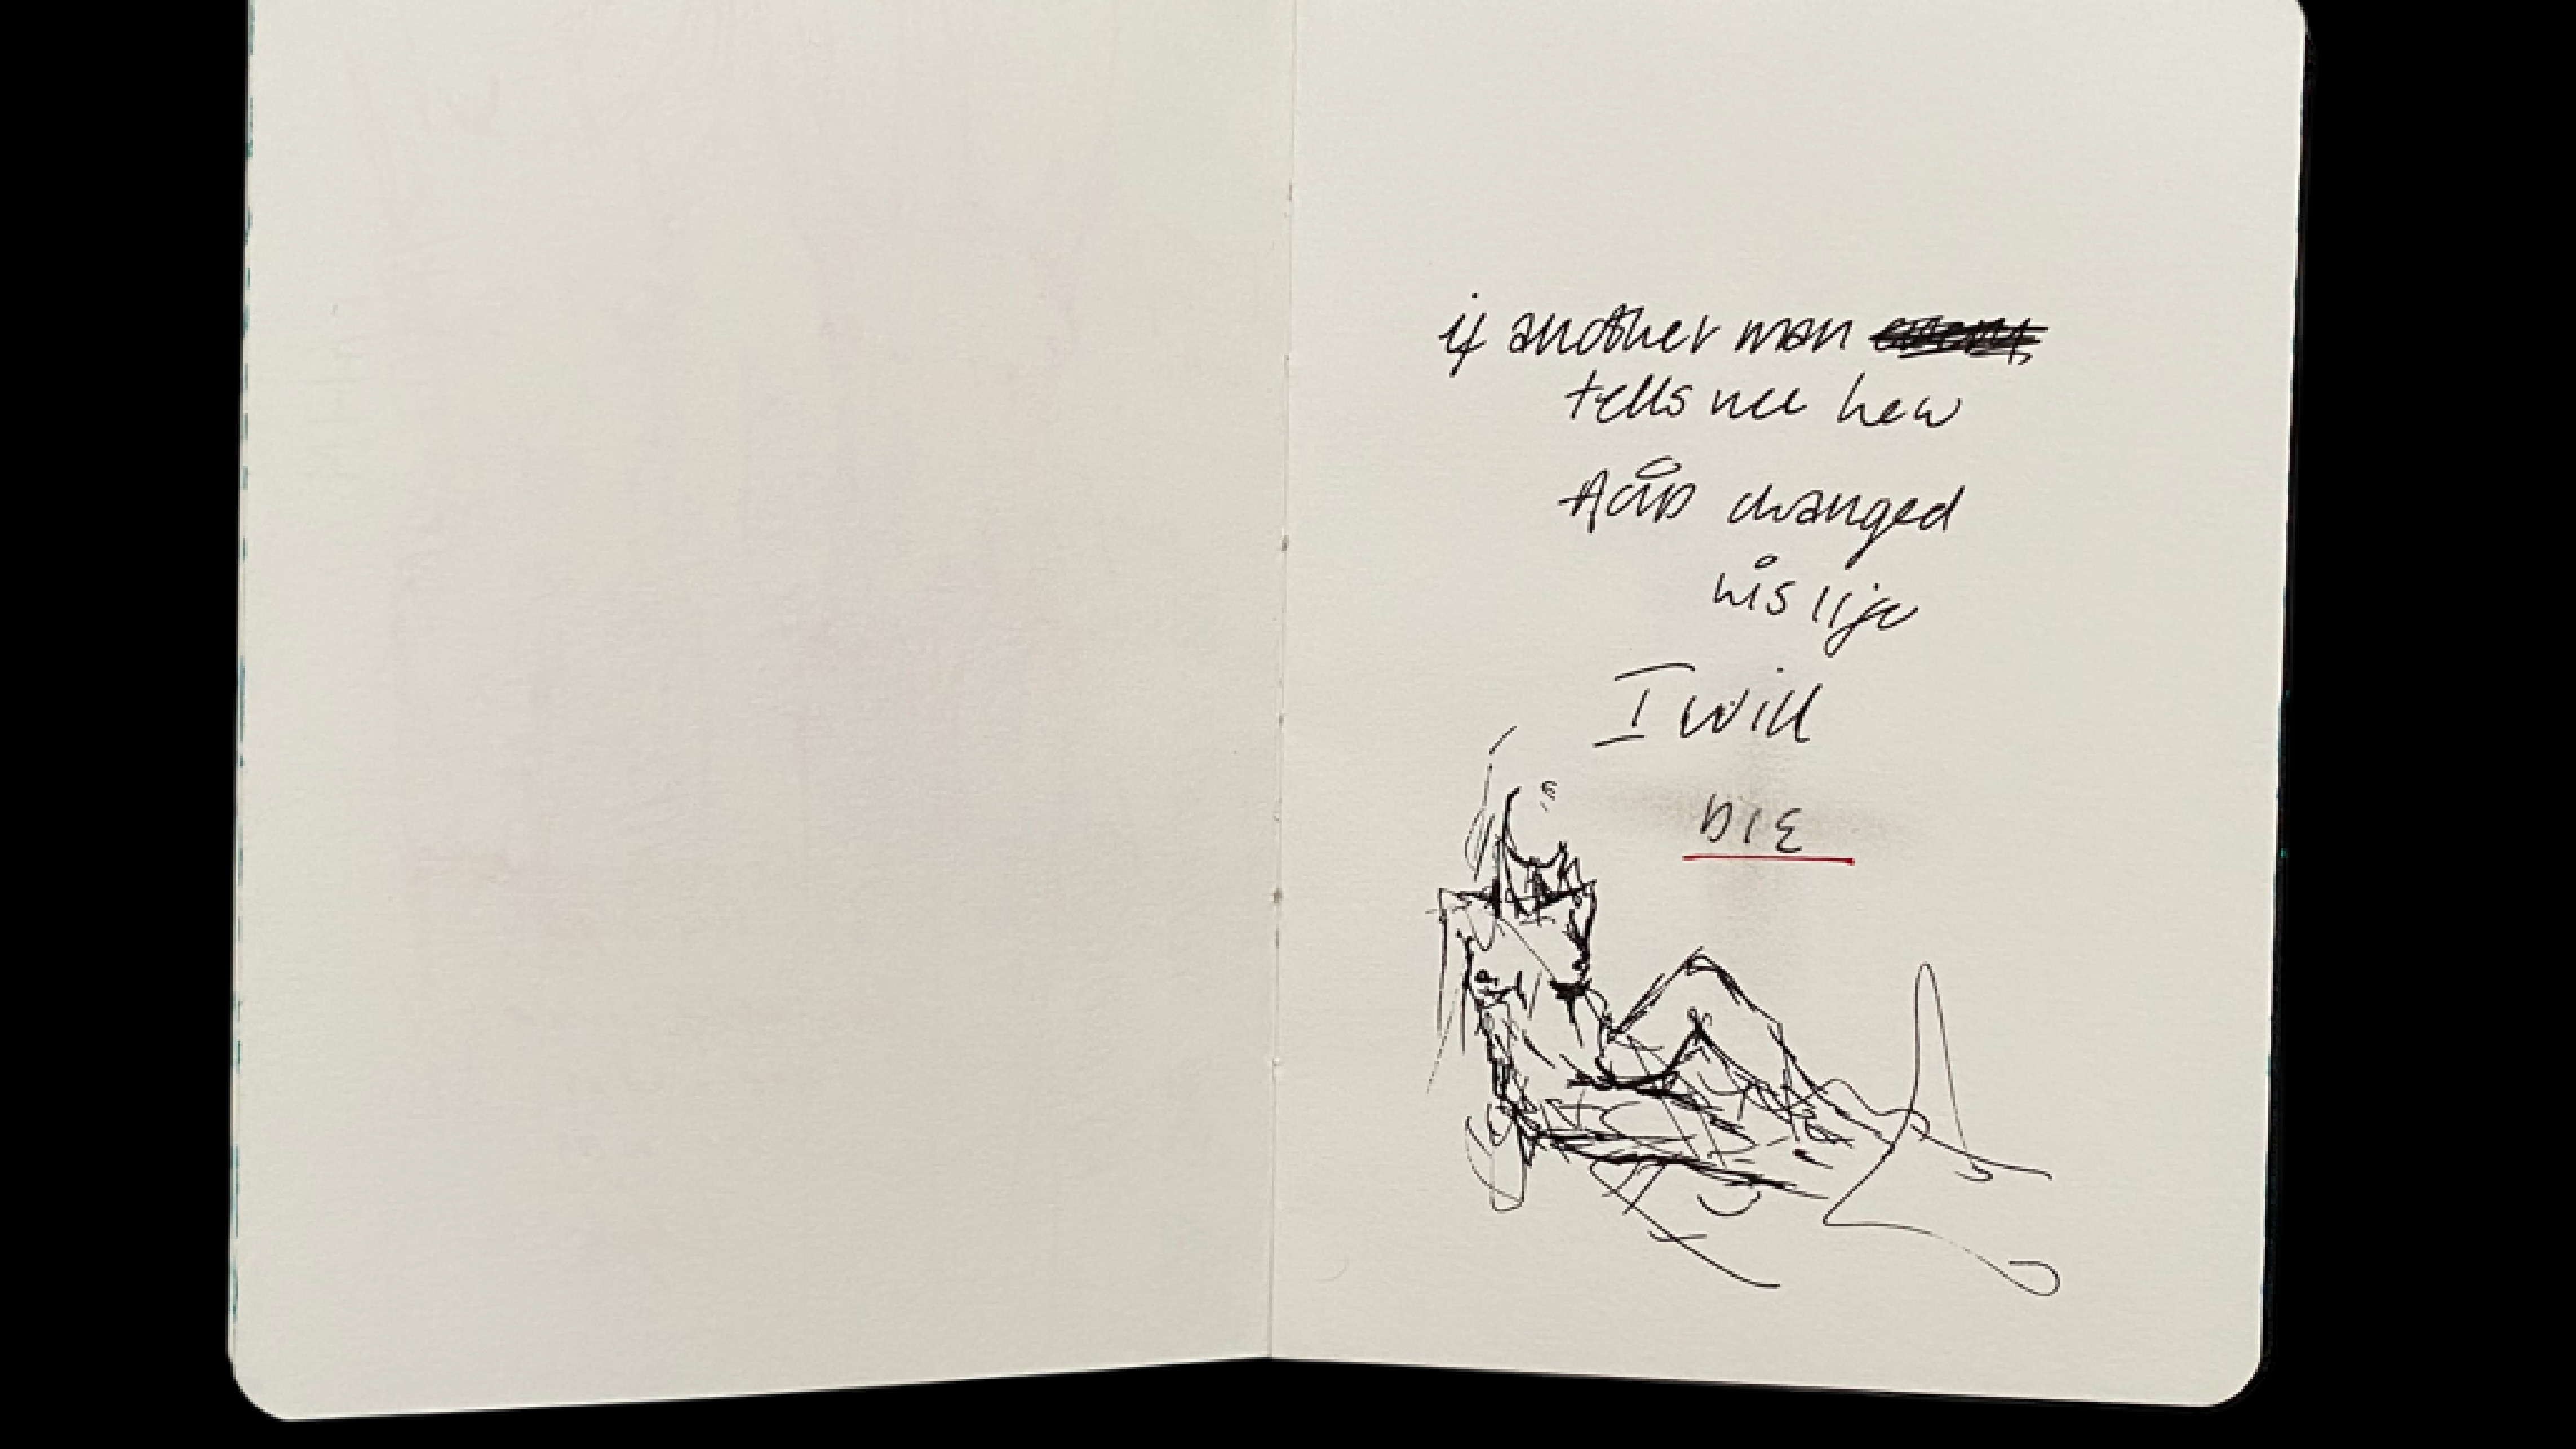 if another man
tells me how
ACID changed
his life
I will
DIE